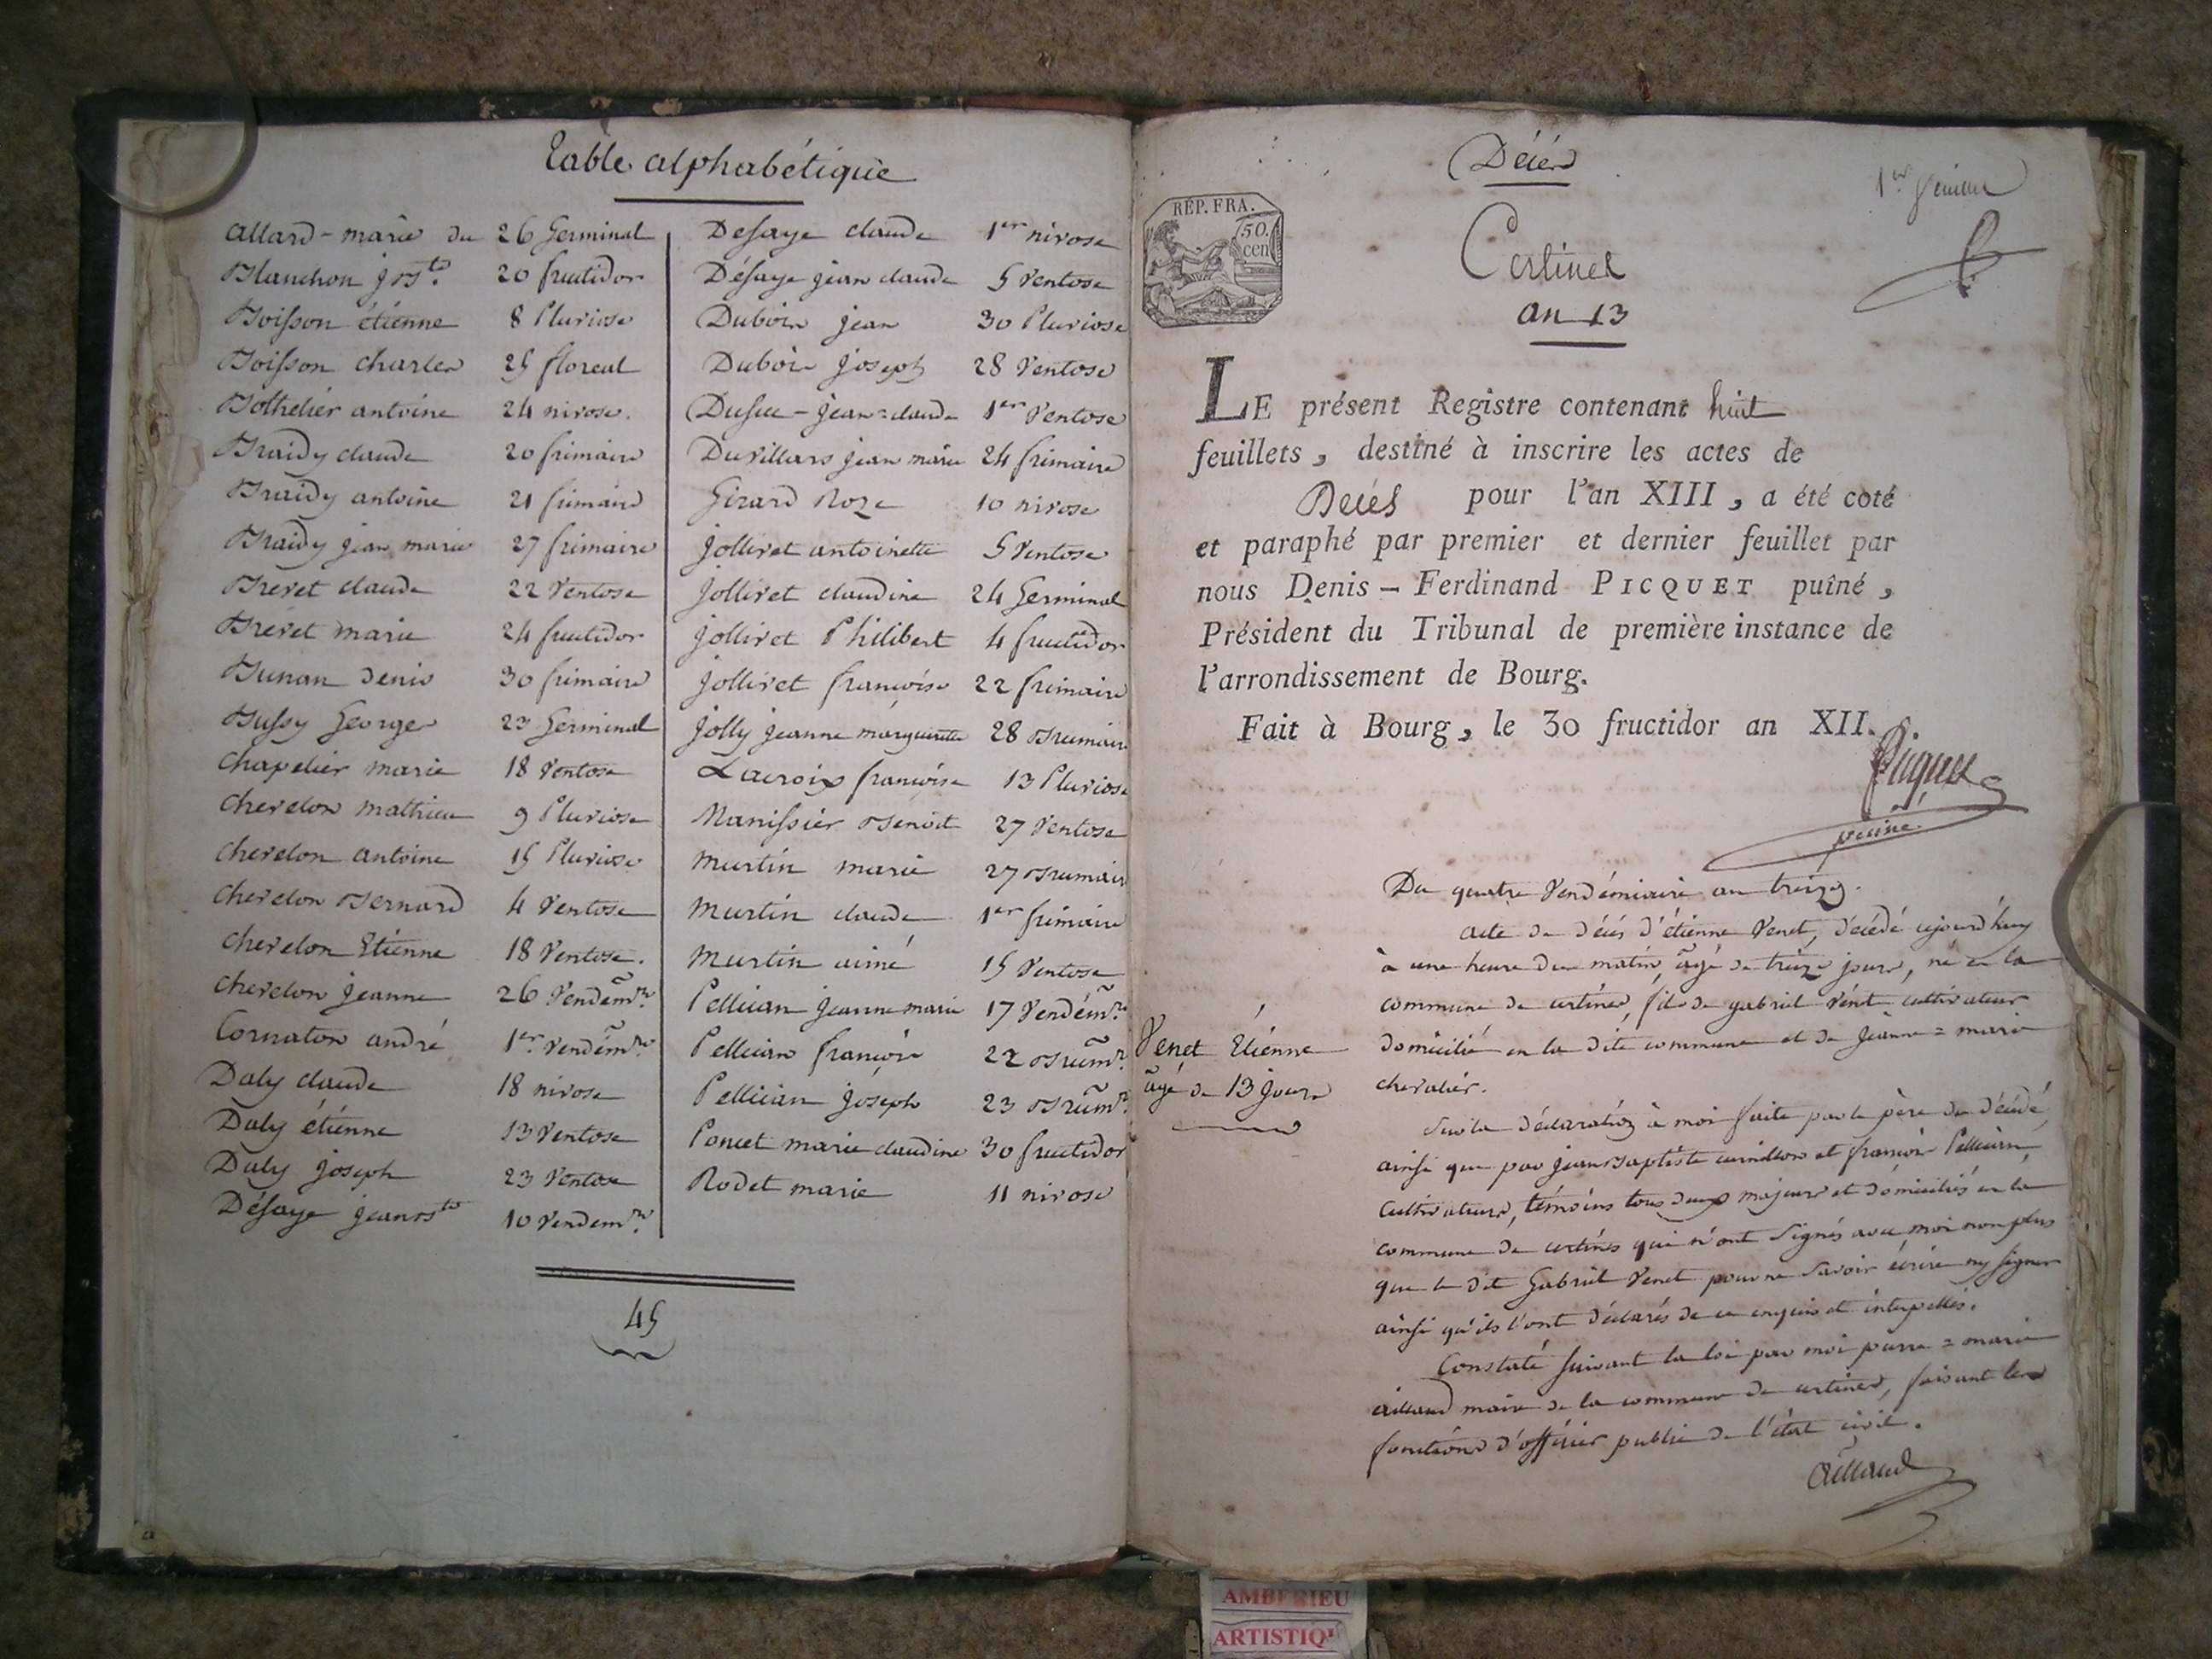 Table alphabétique
allard - marie du 26 Germinal
Blanchon j Bte 20 fructidor
Boisson étienne 8 Pluviose
Boisson charles 25 floreal
Bothelier antoine 24 nivose.
Braidy claude 20 frimaire
Braidy antoine 21 frimaire
Braidy jean marie 27 frimaire
Brevet claude 22 Ventose
Brevet marie 24 fructidor
Bunan denis 30 frimaire
Bussy George 23 Germinal
Chapelier marie 18 Ventose
Chevelon mathieu 9 Pluviose
Chevelon antoine 15 Pluviose
Chevelon Bernard 4 Ventose
Chevelon Etienne 18 Ventose.
Chevelon jeanne 26 Vendémre
Cornaton andré 1er Vendémre
Daly claude 18 nivose
Daly étienne 13 Ventose
Daly joseph 23 Ventose
Désaye jean Bte 10 Vendemre
Desaye claude 1er nivose
Désaye jean claude 5 Ventose
Dubois jean 30 Pluviose
Dubois joseph 28 Ventose
Dufuc - jean=claude 1er Ventose
Duvillars jean marie 24 frimaire
Girard Roze 10 nivose
Jollivet antoinette 5 Ventose
Jollivet claudine 24 Germinal
Jollivet Philibert 4 fructidor
Jollivet françoise 22 frimaire
Jolly jeanne marguerite 28 Brumaire
Lacroix françoise 13 Pluviose
Manissier Benoit 27 Ventose
Murtin marie 27 Brumaire
Murtin claude 1er frimaire
Murtin aimé 15 Ventose
Pellician jeanne marie 17 Vendémre
Pellician françois 22 Brumre
Pellician joseph 23 Brumre
Poncet marie claudine 30 fructidor
Rodet marie 11 nivose
45
Décés
1er feuillet
RÉP. FRA.
50.
cen
Certines
an 13
LE présent Registre contenant huit
feuillets, destiné à inscrire les actes de
Décés pour l'an XIII, a été coté
et paraphé par premier et dernier feuillet par
nous Denis – Ferdinand PICQUET puîné,
Président du Tribunal de première instance de
l'arrondissement de Bourg.
Fait à Bourg, le 30 fructidor an XII.
Picquet
puiné
Du quatre Vendémiaire an treize.
acte de décés d'étienne Venet, décédé cejourd'huy
à une heure du matin, âgé de treize jours, né en la
commune de certines, fils de gabriel Vénet cultivateur
domicilié en la dite commune et de Jeanne=marie
chevalier.
Venet Etiénne
âgé de 13 jours
Sur la déclaration à moi faite par le père du décédé,
ainsi que par jean Baptiste et françois Pellician,
cultivateurs, témoins tous deux majeurs et domiciliés en la
commune de certines qui n'ont signés avec moi non plus
que le dit Gabriel Venet pour ne savoir écrire ny signer
ainsi qu'ils l'ont déclarés de ce enquis et interpellés.
Constaté suivant la loi par moi pierre=marie
aillaud maire de la commune de certines, faisant les
fonctions d'officier public de l'état civil.
Aillaud
AMBERIEU
ARTISTIQU